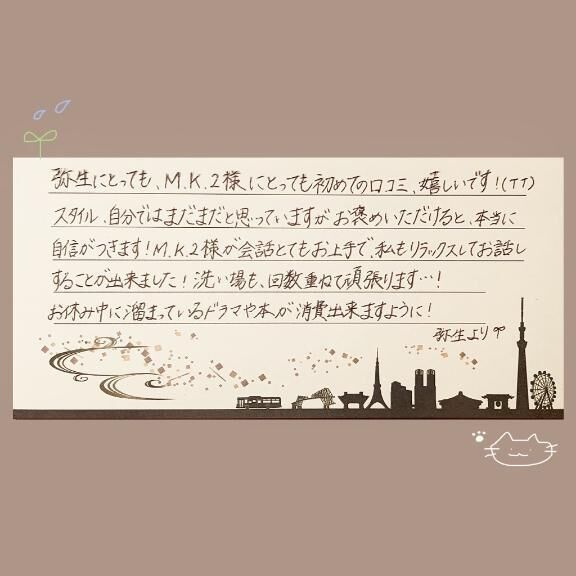 弥生にとっても、M.K.2様にとっても初めての口コミ、嬉しいです!(TT)
スタイル、自分ではまだまだと思っていますがお褒めいただけると、本当に
自信がつきます!M.K.2様が会話とてもお上手で、私もリラックスしてお話し
することが出来ました!洗い場も、回数重ねて頑張ります…!
お休み中に溜まっているドラマや本が消費出来ますように!
弥生より